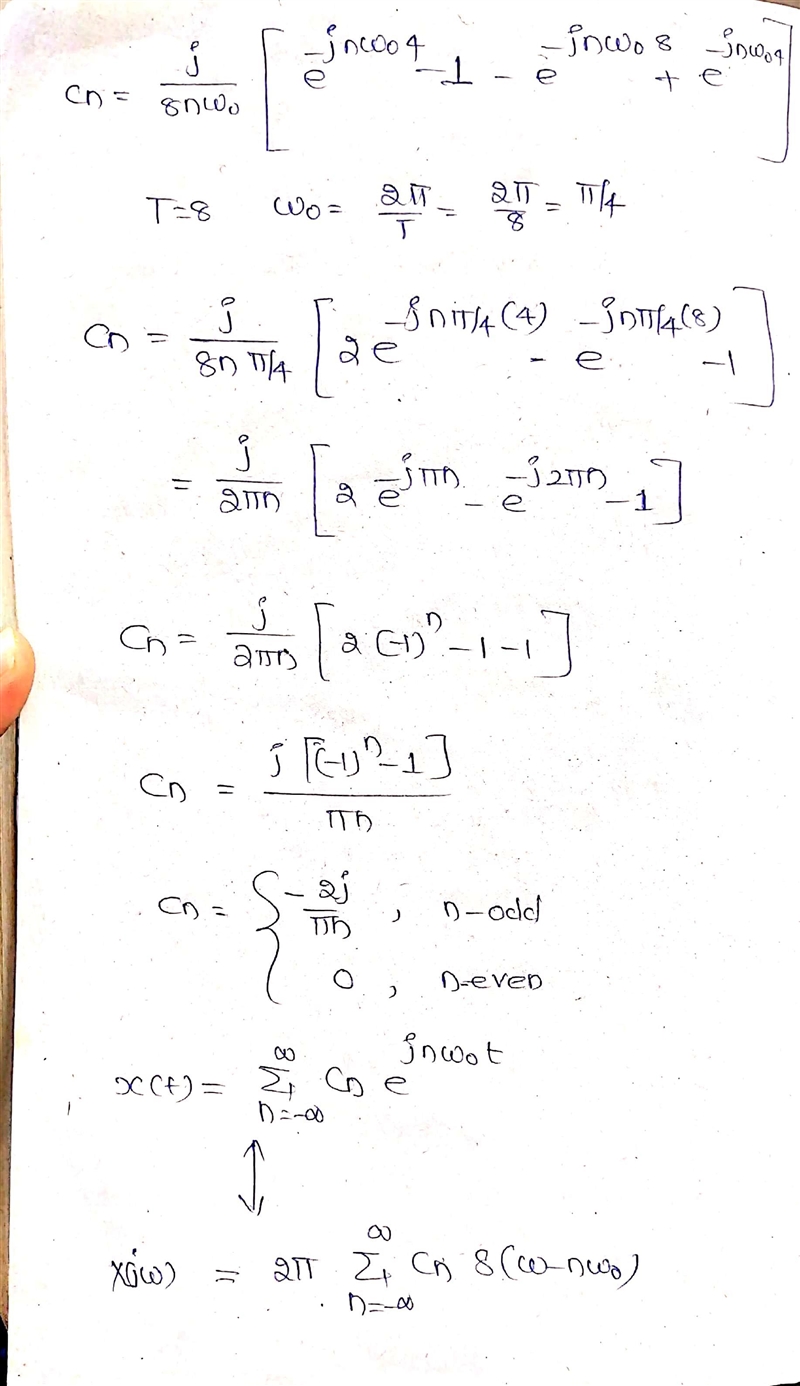 Cn = j/8nω₀ [ e^-jnω₀4 - 1 - e^-jnω₀8 + e^-jnω₀4 ]
T=8 ω₀ = 2π/T = 2π/8 = π/4
Cn = j/8n π/4 [ 2 e^-jnπ/4(4) - e^-jnπ/4(8) - 1 ]
= j/2πn [ 2 e^-jπn - e^-j2πn - 1 ]
Cn = j/2πn [ 2 (-1)^n - 1 - 1 ]
Cn = j [(-1)^n - 1] / πn
Cn = { -2j/πn , n-odd
0 , n-even
x(t) = Σ n=-∞ ∞ Cn e^jnω₀t
↕
X(jω) = 2π Σ n=-∞ ∞ Cn δ(ω-nω₀)